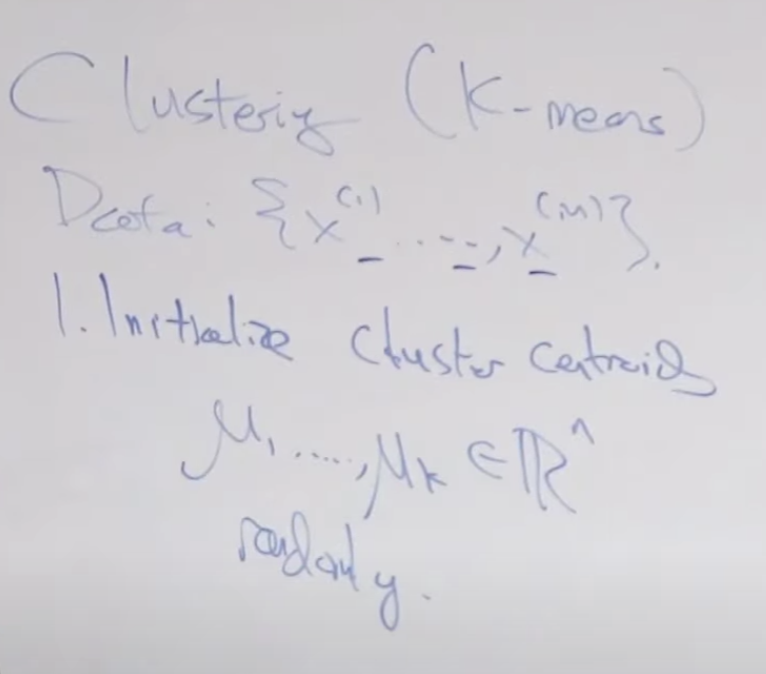 Clustering (K-means)
Data: {x^(1), ...., x^(m)}.
1. Initialize cluster centroids
μ₁, ....., μₖ ∈ ℝⁿ
randomly.